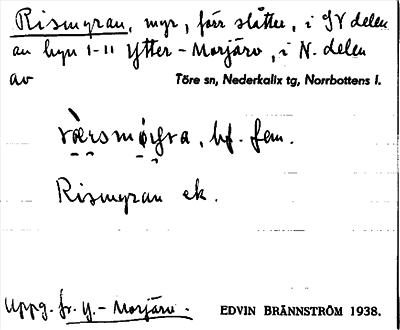 Rismyran, myr, förr slåtter, i SV delen
av hyn 1-11 Ytter-Morjärv, i N. delen
av Töre sn, Nederkalix tg, Norrbottens l.
bf. fem.
Rismyran ek.
Uppg. fr. Y.-Morjärv. EDVIN BRÄNNSTRÖM 1938.